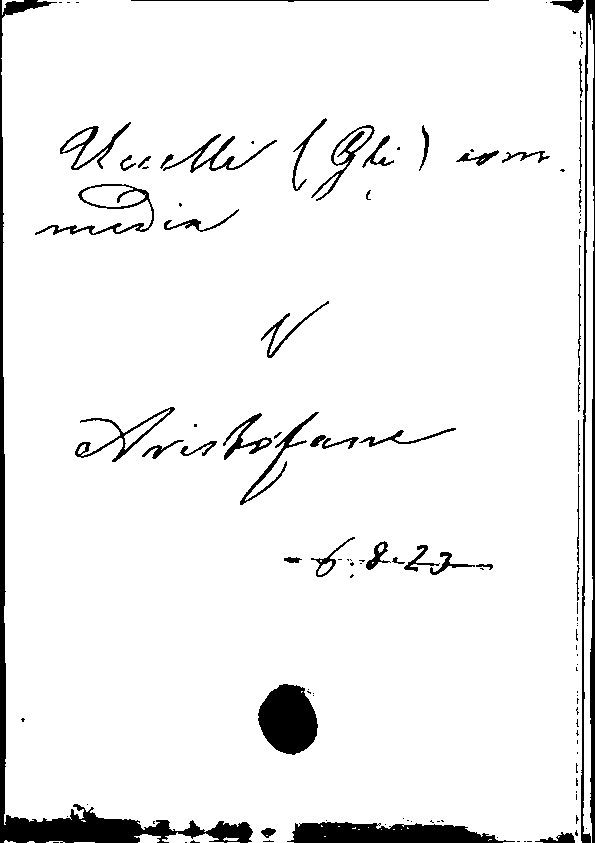 Uccelli (Gli) com.
media
V
Aristofane
- 6.8.23